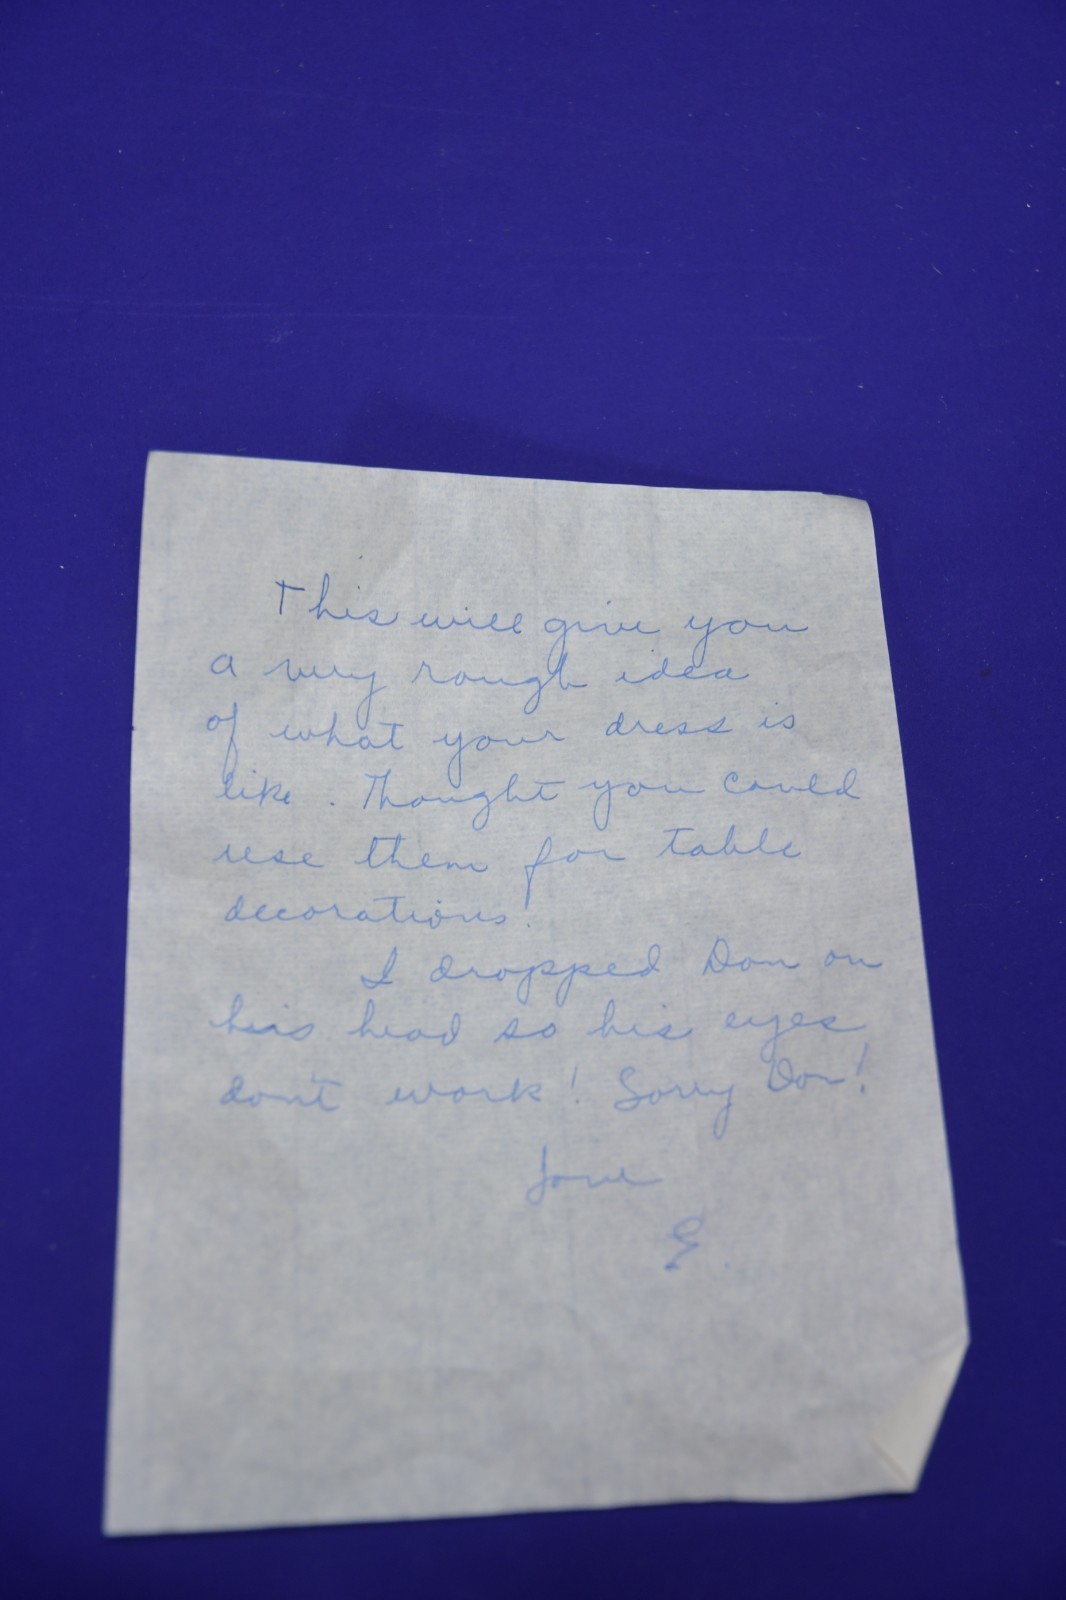 This will give you
a very rough idea
of what your dress is
like. Thought you could
use them for table
decorations!
I dropped Don on
his head so his eyes
don't work! Sorry Don!
Love
E.